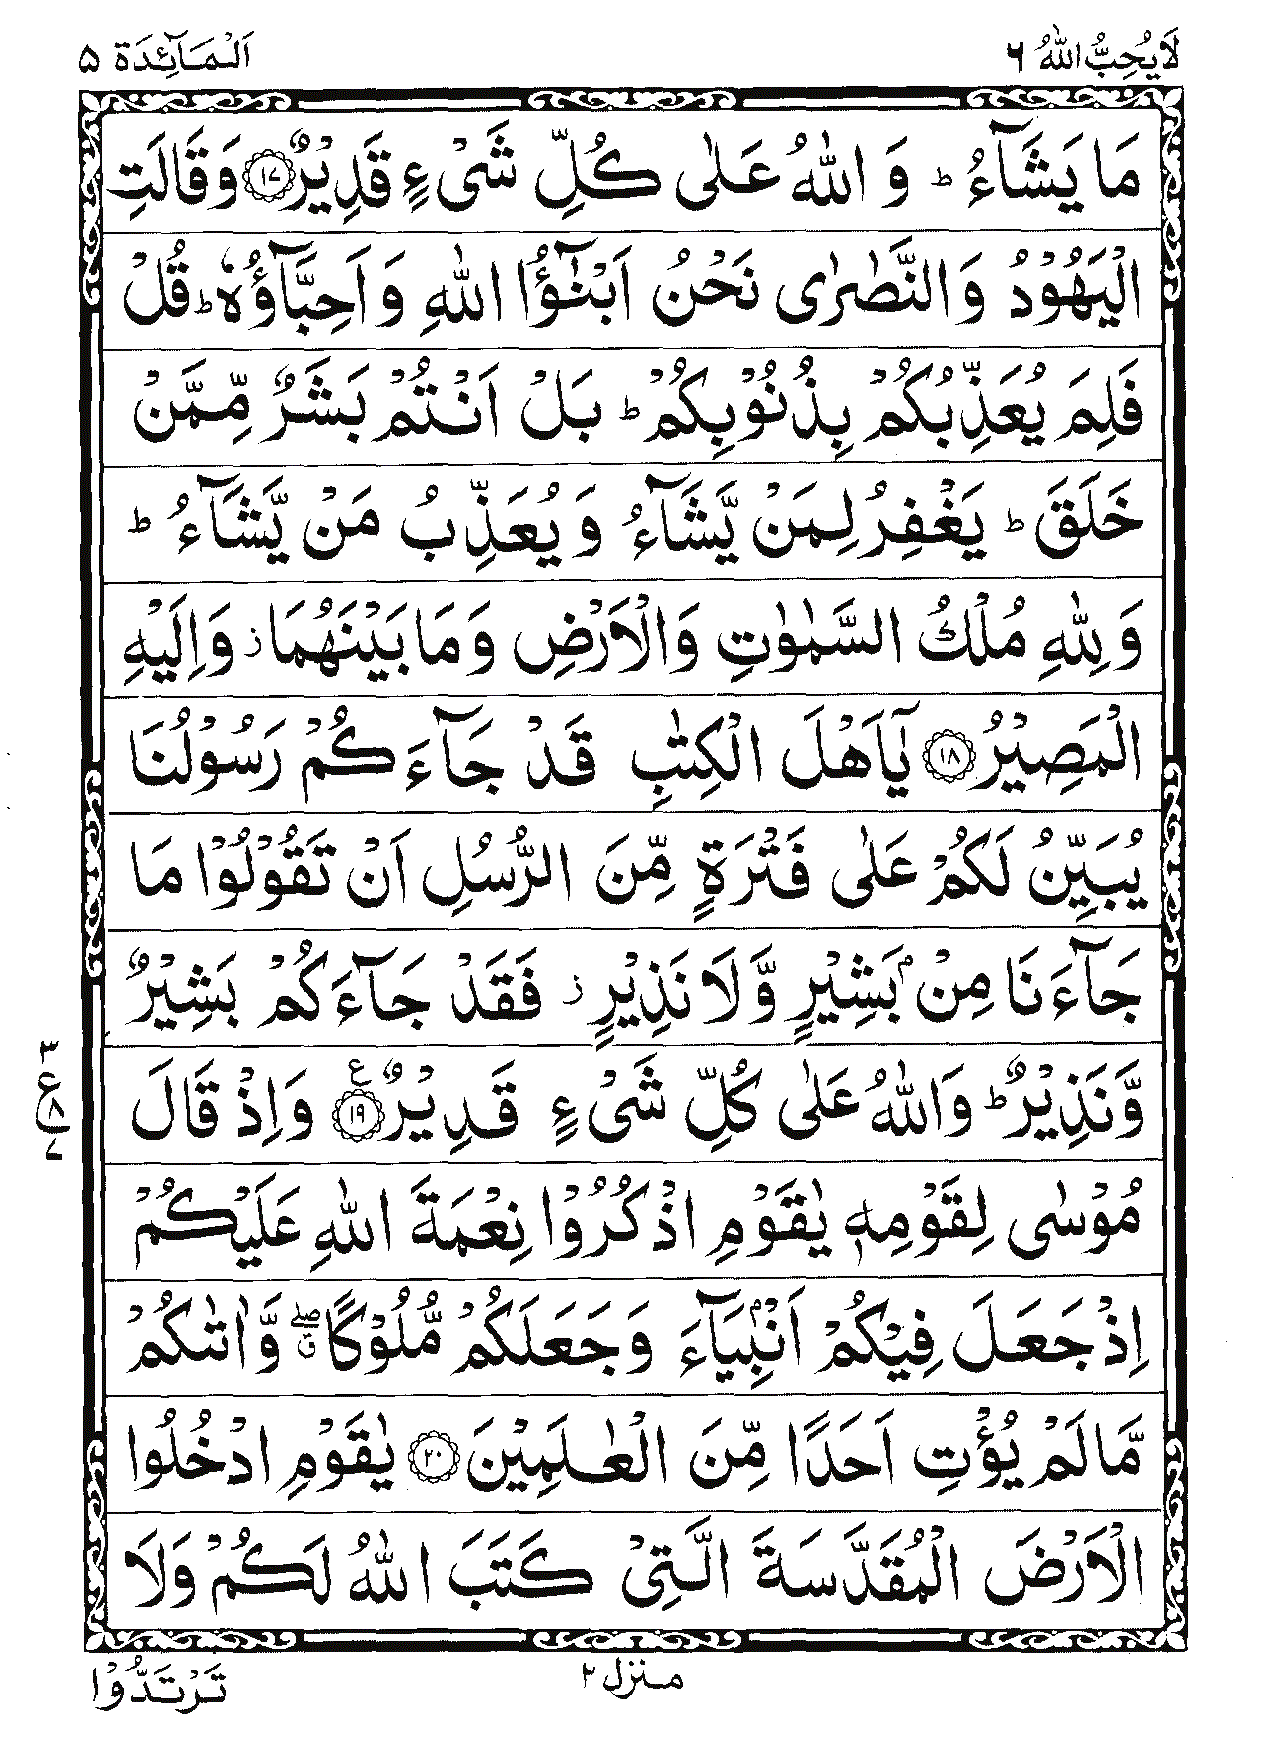 لَا يُحِبُّ اللّٰهُ ۶
اَلْمَآئِدَة ۵
مَا يَشَآءُ ؕ وَ اللّٰهُ عَلٰى كُلِّ شَىْءٍ قَدِيْرٌ ﴿۱۷﴾ وَقَالَتِ
الْيَهُوْدُ وَالنَّصٰرٰى نَحْنُ اَبْنٰٓؤُا اللّٰهِ وَاَحِبَّآؤُهٗ ؕ قُلْ
فَلِمَ يُعَذِّبُكُمْ بِذُنُوْبِكُمْ ؕ بَلْ اَنْتُمْ بَشَرٌ مِّمَّنْ
خَلَقَ ؕ يَغْفِرُ لِمَنْ يَّشَآءُ وَيُعَذِّبُ مَنْ يَّشَآءُ ؕ
وَلِلّٰهِ مُلْكُ السَّمٰوٰتِ وَالْاَرْضِ وَمَا بَيْنَهُمَا ؗ وَاِلَيْهِ
الْمَصِيْرُ ﴿۱۸﴾ يٰۤاَهْلَ الْكِتٰبِ قَدْ جَآءَكُمْ رَسُوْلُنَا
يُبَيِّنُ لَكُمْ عَلٰى فَتْرَةٍ مِّنَ الرُّسُلِ اَنْ تَقُوْلُوْا مَا
جَآءَنَا مِنْۢ بَشِيْرٍ وَّلَا نَذِيْرٍ ؗ فَقَدْ جَآءَكُمْ بَشِيْرٌ
وَّنَذِيْرٌ ؕ وَاللّٰهُ عَلٰى كُلِّ شَىْءٍ قَدِيْرٌ ﴿۱۹﴾ ع وَاِذْ قَالَ
۳
ع ۸
۷
مُوْسٰى لِقَوْمِهٖ يٰقَوْمِ اذْكُرُوْا نِعْمَةَ اللّٰهِ عَلَيْكُمْ
اِذْ جَعَلَ فِيْكُمْ اَنْۢبِيَآءَ وَجَعَلَكُمْ مُّلُوْكًا ۖق وَّاٰتٰىكُمْ
مَّا لَمْ يُؤْتِ اَحَدًا مِّنَ الْعٰلَمِيْنَ ﴿۲۰﴾ يٰقَوْمِ ادْخُلُوا
الْاَرْضَ الْمُقَدَّسَةَ الَّتِىْ كَتَبَ اللّٰهُ لَكُمْ وَلَا
منزل ۲
تَرْتَدُّوْا